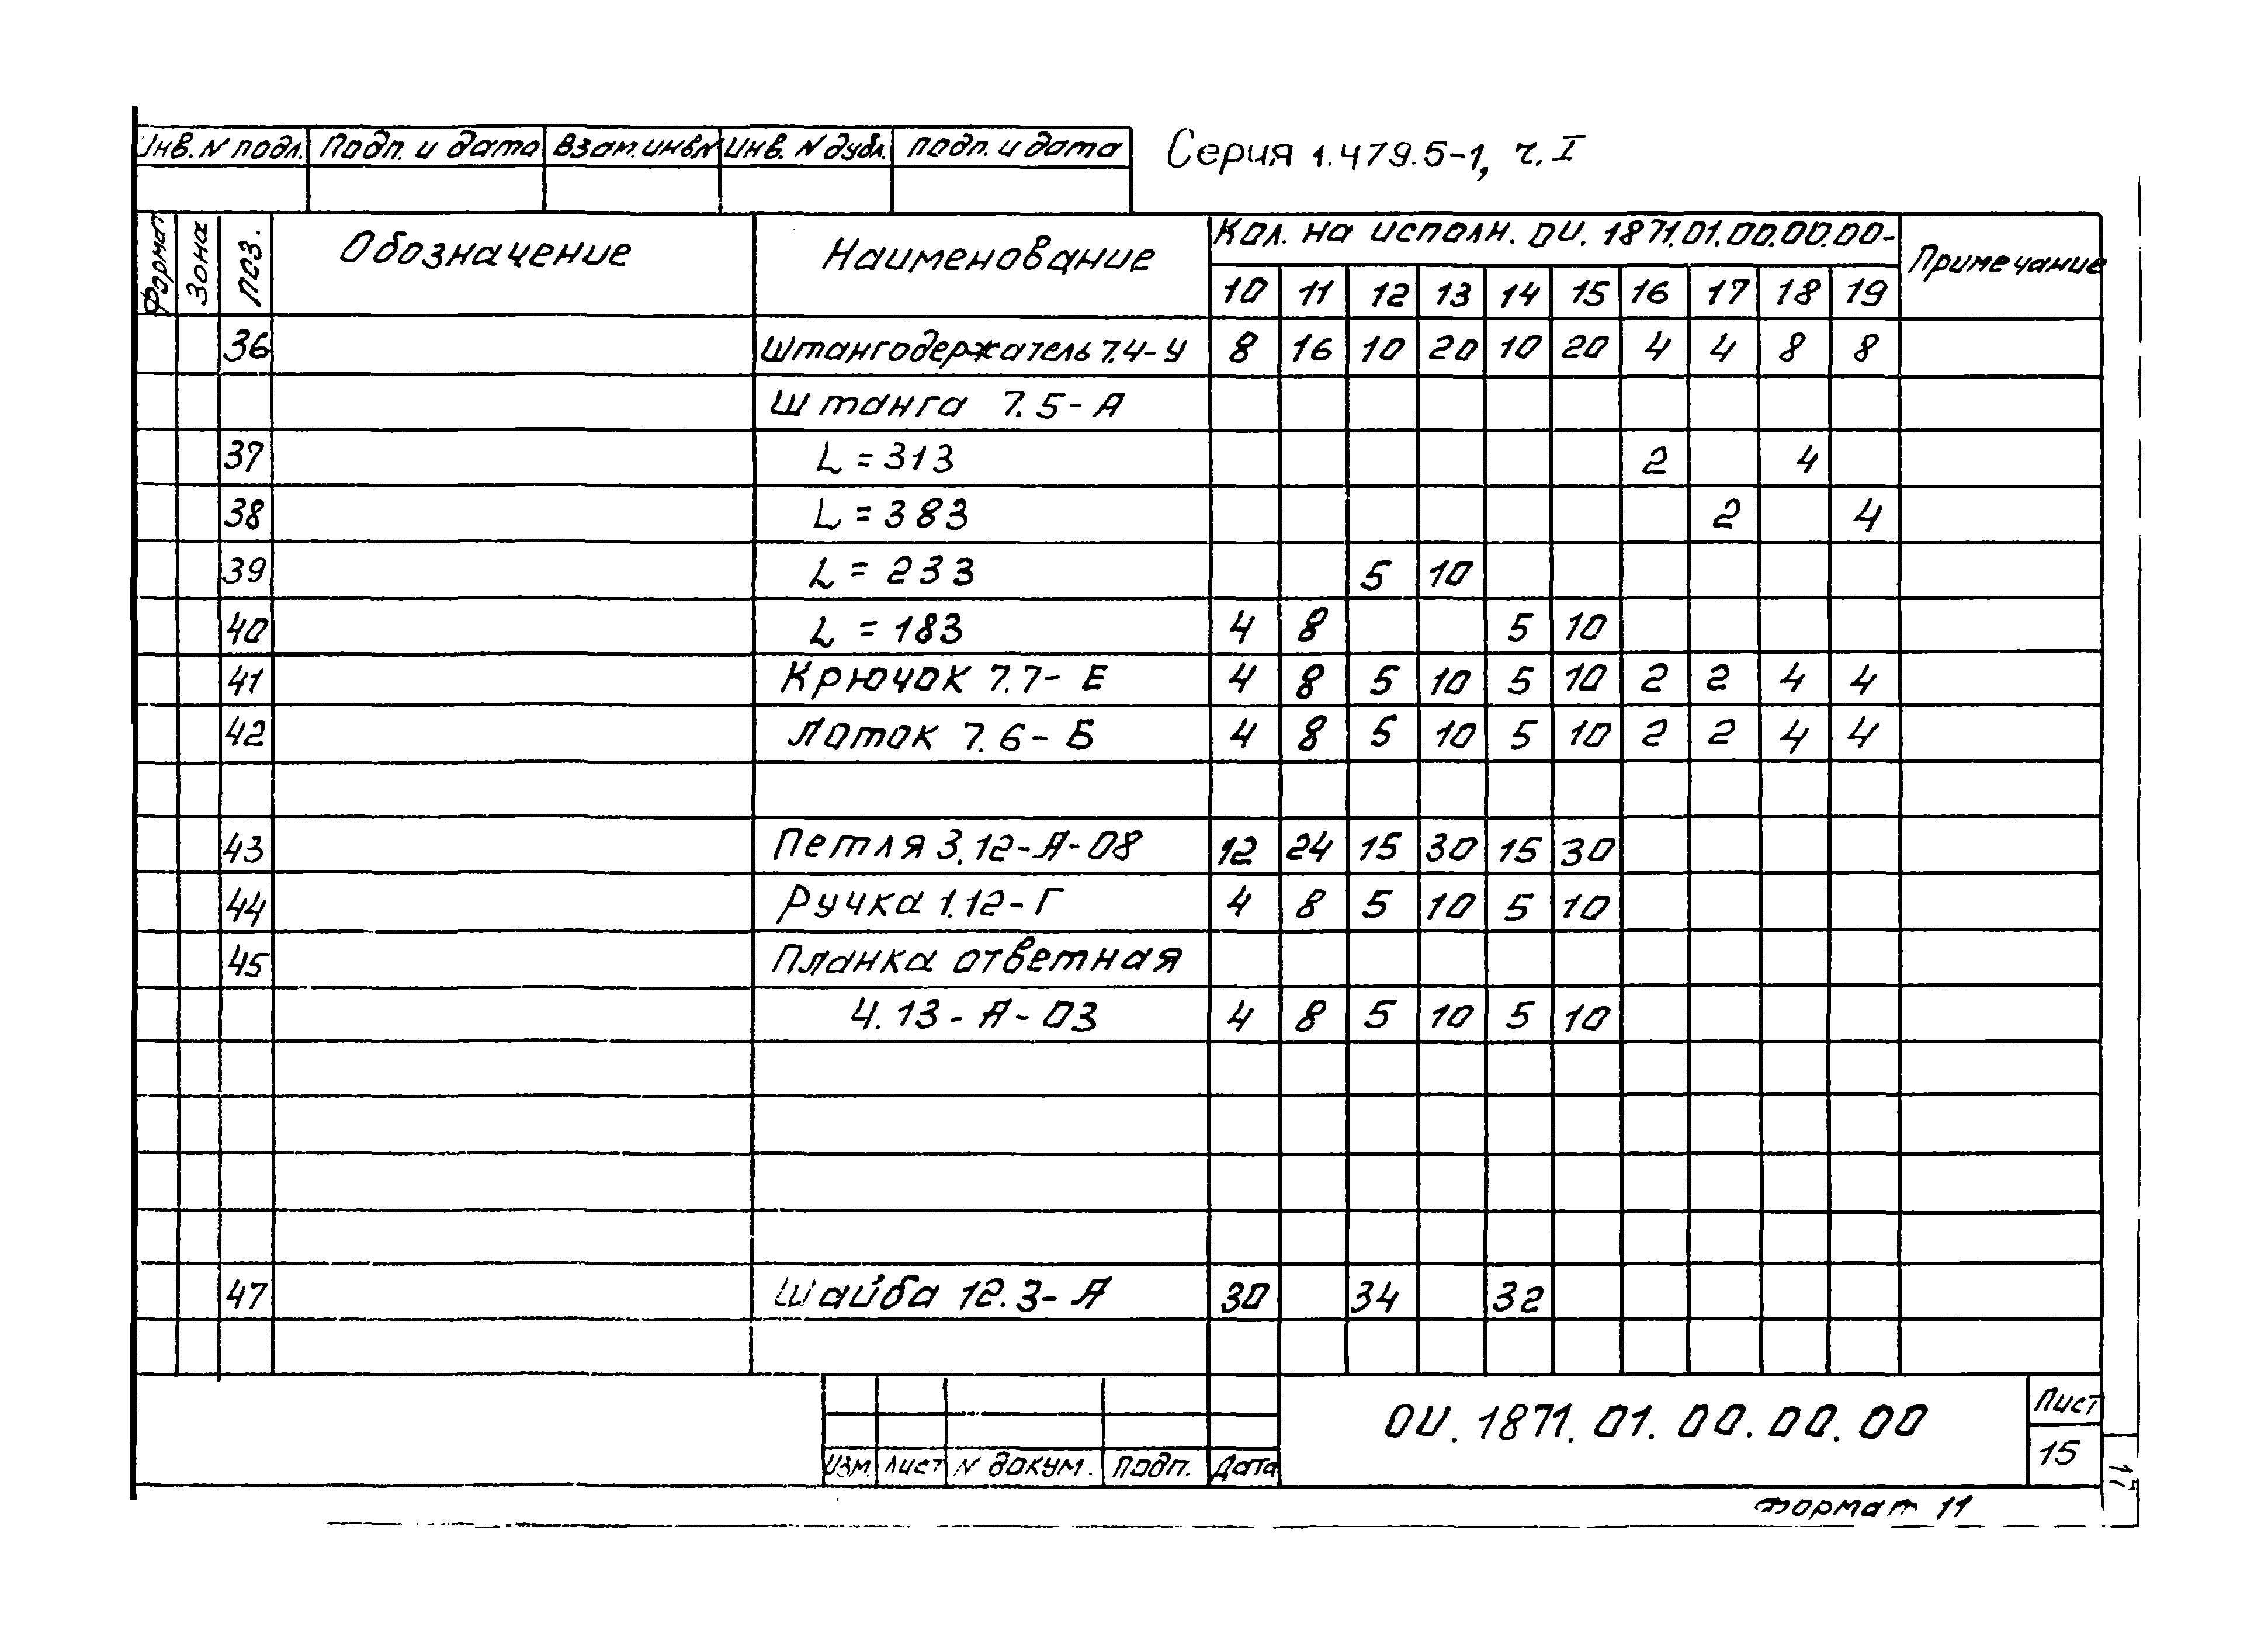 Инв. N подл. Подп. и дата Взам. инв. N Инв. N дубл. Подп. и дата Серия 1.479.5-1, ч. I
Формат Зона Поз. Обозначение Наименование Кол. на исполн. ОИ. 1871.01.00.00.00- Примечание
10 11 12 13 14 15 16 17 18 19
36 Штангодержатель 7.4-У 8 16 10 20 10 20 4 4 8 8
Штанга 7.5-А
37 L = 313 2 4
38 L = 383 2 4
39 L = 233 5 10
40 L = 183 4 8 5 10
41 Крючок 7.7-Е 4 8 5 10 5 10 2 2 4 4
42 Лоток 7.6-Б 4 8 5 10 5 10 2 2 4 4
43 Петля 3.12-А-08 12 24 15 30 15 30
44 Ручка 1.12-Г 4 8 5 10 5 10
45 Планка ответная
4.13-А-03 4 8 5 10 5 10
47 Шайба 12.3-А 30 34 32
ОИ. 1871. 01. 00. 00. 00 Лист
15
Изм. Лист N докум. Подп. Дата
17
Формат 11